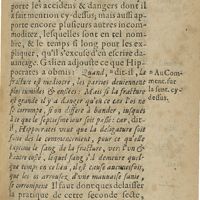 porte les accidens & dangers dont il
a fait mention cy-dessus; mais aussi ap-
porte encore plusieurs autres incom-
moditez, lesquelles sont en tel nom-
bre, & le temps si long pour les ex-
pliquer, qu'il s'excuse d'en escrire da-
uantage. Galien adjouste ce que Hip-
pocrates a obmis: Quand, dit-il, la
fracture est meslée, les parties deuiennent
plus tumides & enflées: Mais si la fracture
est grande il y a danger qu'en ce cas l'os ne
se corrompe, si on differe à bander, iusques
à ce que le septiesme iour soit passé: car, dit-
il, Hippocrates veut que la deligature soit
faite dés le commencement, pour ce que
le sang de la fracture, vers l'vn &
l'autre costé, lequel sang s'il demeure quel-
que temps en ceux, desia causé amassez,
que les os arrousez, d'vne mauuaise sanie,
se corrompent. Il faut donques delaisser
la pratique de cette seconde secte,
* Au Com-
ment. sur
la sent. cy-
dessus.